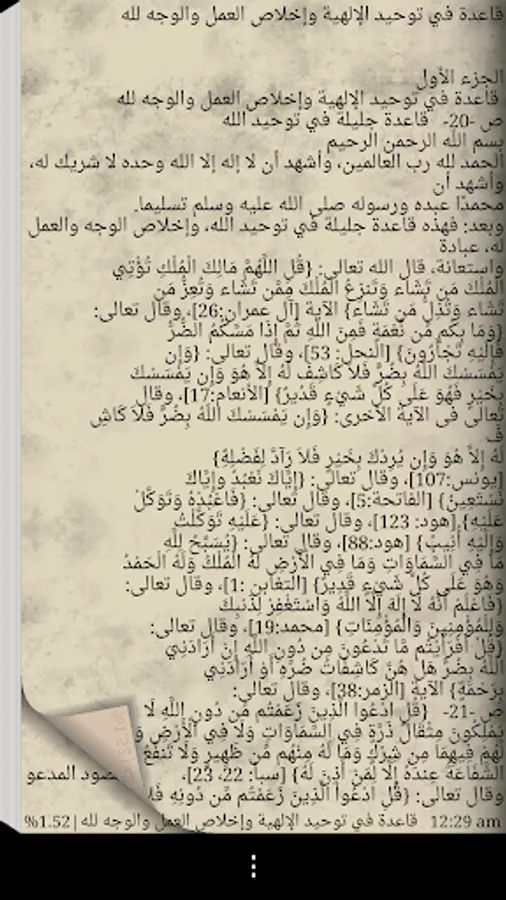 قاعدة في توحيد الإلهية وإخلاص العمل والوجه لله
الجزء الأول
قاعدة في توحيد الإلهية وإخلاص العمل والوجه لله
ص -20- قاعدة جليلة في توحيد الله
بسم الله الرحمن الرحيم
الحمد لله رب العالمين، وأشهد أن لا إله إلا الله وحده لا شريك له،
وأشهد أن
محمدًا عبده ورسوله صلى الله عليه وسلم تسليما.
وبعد: فهذه قاعدة جليلة في توحيد الله، وإخلاص الوجه والعمل
له، عبادة
واستعانة، قال الله تعالى: {قُلِ اللَّهُمَّ مَالِكَ الْمُلْكِ تُؤْتِي
الْمُلْكَ مَن تَشَاء وَتَنزِعُ الْمُلْكَ مِمَّن تَشَاء وَتُعِزُّ مَن
تَشَاء وَتُذِلُّ مَن تَشَاء} الآية [آل عمران:26]، وقال تعالى:
{وَمَا بِكُم مِّن نِّعْمَةٍ فَمِنَ اللّهِ ثُمَّ إِذَا مَسَّكُمُ الضُّرُّ
فَإِلَيْهِ تَجْأَرُونَ} [النحل: 53]، وقال تعالى: {وَإِن
يَمْسَسْكَ اللّهُ بِضُرٍّ فَلاَ كَاشِفَ لَهُ إِلاَّ هُوَ وَإِن يَمْسَسْكَ
بِخَيْرٍ فَهُوَ عَلَى كُلِّ شَيْءٍ قَدُيرٌ} [الأنعام:17]، وقال
تعالى في الآية الأخرى: {وَإِن يَمْسَسْكَ اللّهُ بِضُرٍّ فَلاَ كَاشِ
فَ
لَهُ إِلاَّ هُوَ وَإِن يُرِدْكَ بِخَيْرٍ فَلاَ رَآدَّ لِفَضْلِهِ}
[يونس:107]، وقال تعالى: {إِيَّاكَ نَعْبُدُ وإِيَّاكَ
نَسْتَعِينُ} [الفاتحة:5]، وقال تعالى: {فَاعْبُدْهُ وَتَوَكَّلْ
عَلَيْهِ} [هود: 123]، وقال تعالى: {عَلَيْهِ تَوَكَّلْتُ
وَإِلَيْهِ أُنِيبُ} [هود:88]، وقال تعالى: {يُسَبِّحُ لِلَّهِ
مَا فِي السَّمَاوَاتِ وَمَا فِي الْأَرْضِ لَهُ الْمُلْكُ وَلَهُ الْحَمْدُ
وَهُوَ عَلَى كُلِّ شَيْءٍ قَدِيرٌ} [التغابن :1]، وقال تعالى:
{فَاعْلَمْ أَنَّهُ لَا إِلَهَ إِلَّا اللَّهُ وَاسْتَغْفِرْ لِذَنبِكَ
وَلِلْمُؤْمِنِينَ وَالْمُؤْمِنَاتِ} [محمد:19]، وقال تعالى:
{قُلْ أَفَرَأَيْتُم مَّا تَدْعُونَ مِن دُونِ اللَّهِ إِنْ أَرَادَنِيَ
اللَّهُ بِضُرٍّ هَلْ هُنَّ كَاشِفَاتُ ضُرِّهِ أَوْ أَرَادَنِي
بِرَحْمَةٍ} الآية [الزمر:38]، وقال تعالى:
ص -21- {قُلِ ادْعُوا الَّذِينَ زَعَمْتُم مِّن دُونِ اللَّهِ لَا
يَمْلِكُونَ مِثْقَالَ ذَرَّةٍ فِي السَّمَاوَاتِ وَلَا فِي الْأَرْضِ وَ
لَهُمْ فِيهِمَا مِن شِرْكٍ وَمَا لَهُ مِنْهُم مِّن ظَهِيرٍ وَلَا تَنفَعُ
الشَّفَاعَةُ عِندَهُ إِلَّا لِمَنْ أَذِنَ لَهُ} [سبأ: 22، 23]، صود المدعو
وقال تعالى: {قُلِ ادْعُواْ الَّذِينَ زَعَمْتُم مِّن دُونِهِ فَلاَ
12:29 am قاعدة في توحيد الإلهية وإخلاص العمل والوجه لله | %1.52